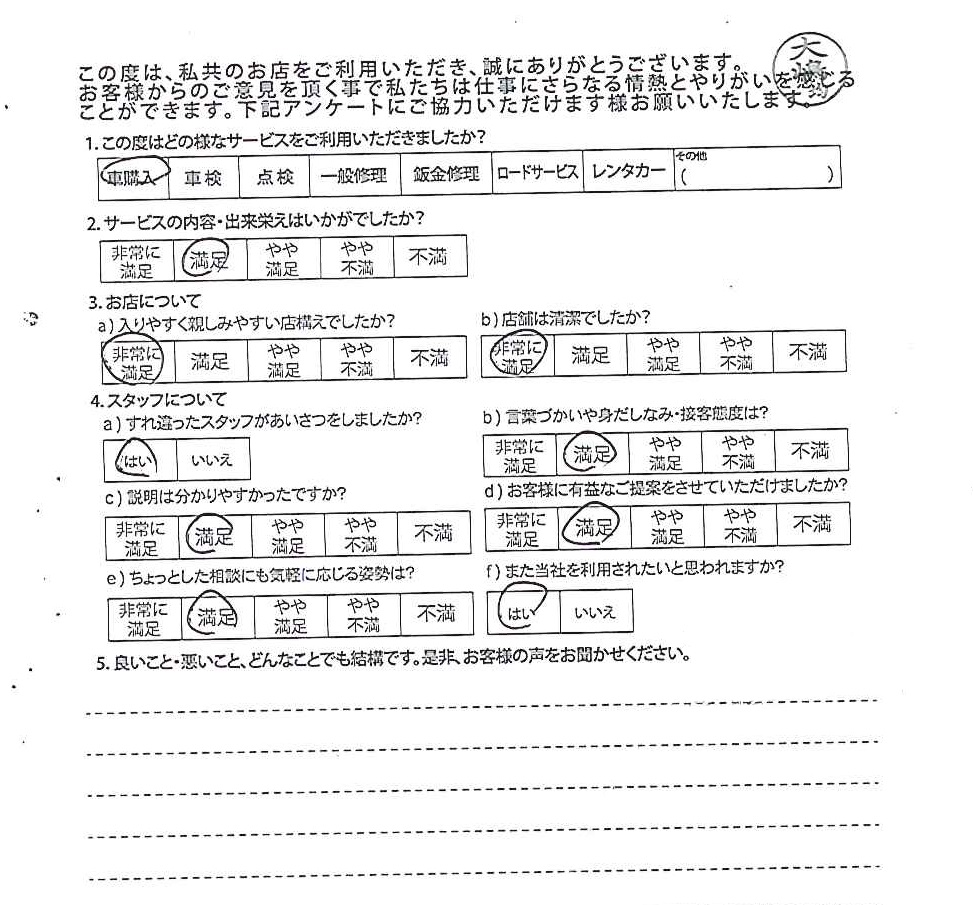 この度は、私共のお店をご利用いただき、誠にありがとうございます。
お客様からのご意見を頂く事で私たちは仕事にさらなる情熱とやりがいを感じる
ことができます。下記アンケートにご協力いただけます様お願いいたします。
大
1.この度はどの様なサービスをご利用いただきましたか?
車購入 車検 点検 一般修理 鈑金修理 ロードサービス レンタカー その他 ( )
2.サービスの内容・出来栄えはいかがでしたか?
非常に満足 満足 やや満足 やや不満 不満
3.お店について
a)入りやすく親しみやすい店構えでしたか?
非常に満足 満足 やや満足 やや不満 不満
b)店舗は清潔でしたか?
非常に満足 満足 やや満足 やや不満 不満
4.スタッフについて
a)すれ違ったスタッフがあいさつをしましたか?
はい いいえ
b)言葉づかいや身だしなみ・接客態度は?
非常に満足 満足 やや満足 やや不満 不満
c)説明は分かりやすかったですか?
非常に満足 満足 やや満足 やや不満 不満
d)お客様に有益なご提案をさせていただけましたか?
非常に満足 満足 やや満足 やや不満 不満
e)ちょっとした相談にも気軽に応じる姿勢は?
非常に満足 満足 やや満足 やや不満 不満
f)また当社を利用されたいと思われますか?
はい いいえ
5.良いこと・悪いこと、どんなことでも結構です。是非、お客様の声をお聞かせください。